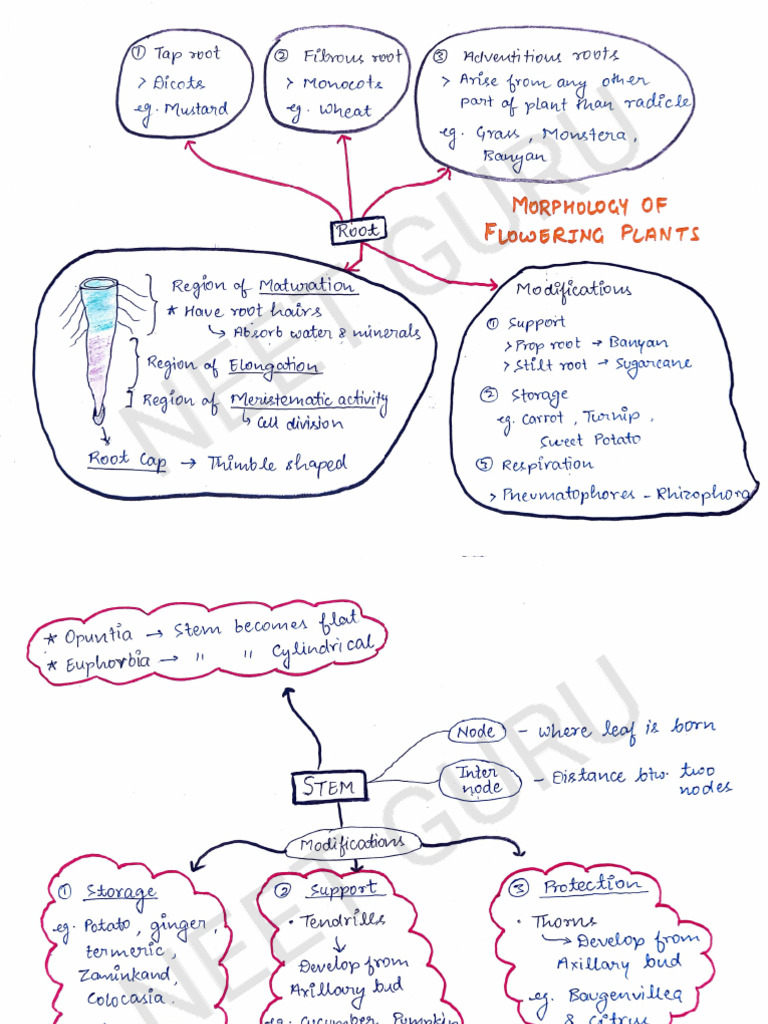 ① Tap root
> Dicots
eg. Mustard
② Fibrous root
> Monocots
eg. Wheat
③ Adventitious roots
> Arise from any other
part of plant than radicle
eg. Grass, Monstera,
Banyan
MORPHOLOGY OF
FLOWERING PLANTS
Root
Region of Maturation
* Have root hairs
↳ Absorb water & minerals
Region of Elongation
Region of Meristematic activity
↳ Cell division
Root Cap → Thimble shaped
Modifications
① Support
> Prop root → Banyan
> Stilt root → Sugarcane
② Storage
eg. Carrot, Turnip,
Sweet Potato
③ Respiration
> Pneumatophores - Rhizophora
NEET GURU
* Opuntia → Stem becomes flat
* Euphorbia → " " Cylindrical
Node - where leaf is born
Inter
node - Distance btw. two
nodes
STEM
Modifications
① Storage
eg. Potato, ginger,
termeric,
Zaminkand,
Colocasia.
② Support
• Tendrills
↓
Develop from
Axillary bud
eg. Cucumber, Pumpkin
③ Protection
• Thorns
↳ Develop from
Axillary bud
eg. Baugenvillea
& Citrus
NEET GURU